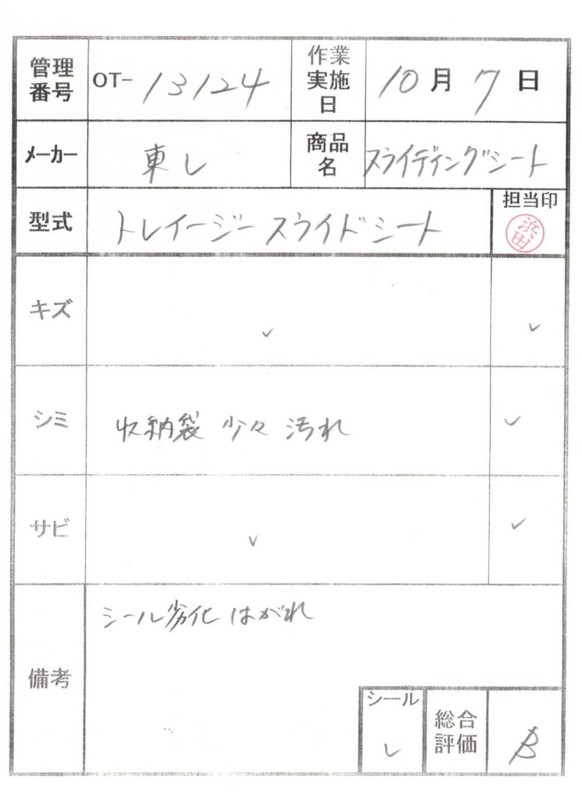 管理番号 OT-13124 作業実施日 10月7日
メーカー 東レ 商品名 スライディングシート
型式 トレイージースライドシート 担当印
キズ ✓ ✓
シミ 収納袋 少々 汚れ ✓
サビ ✓ ✓
備考 シール劣化 はがれ
シール ✓ 総合評価 B